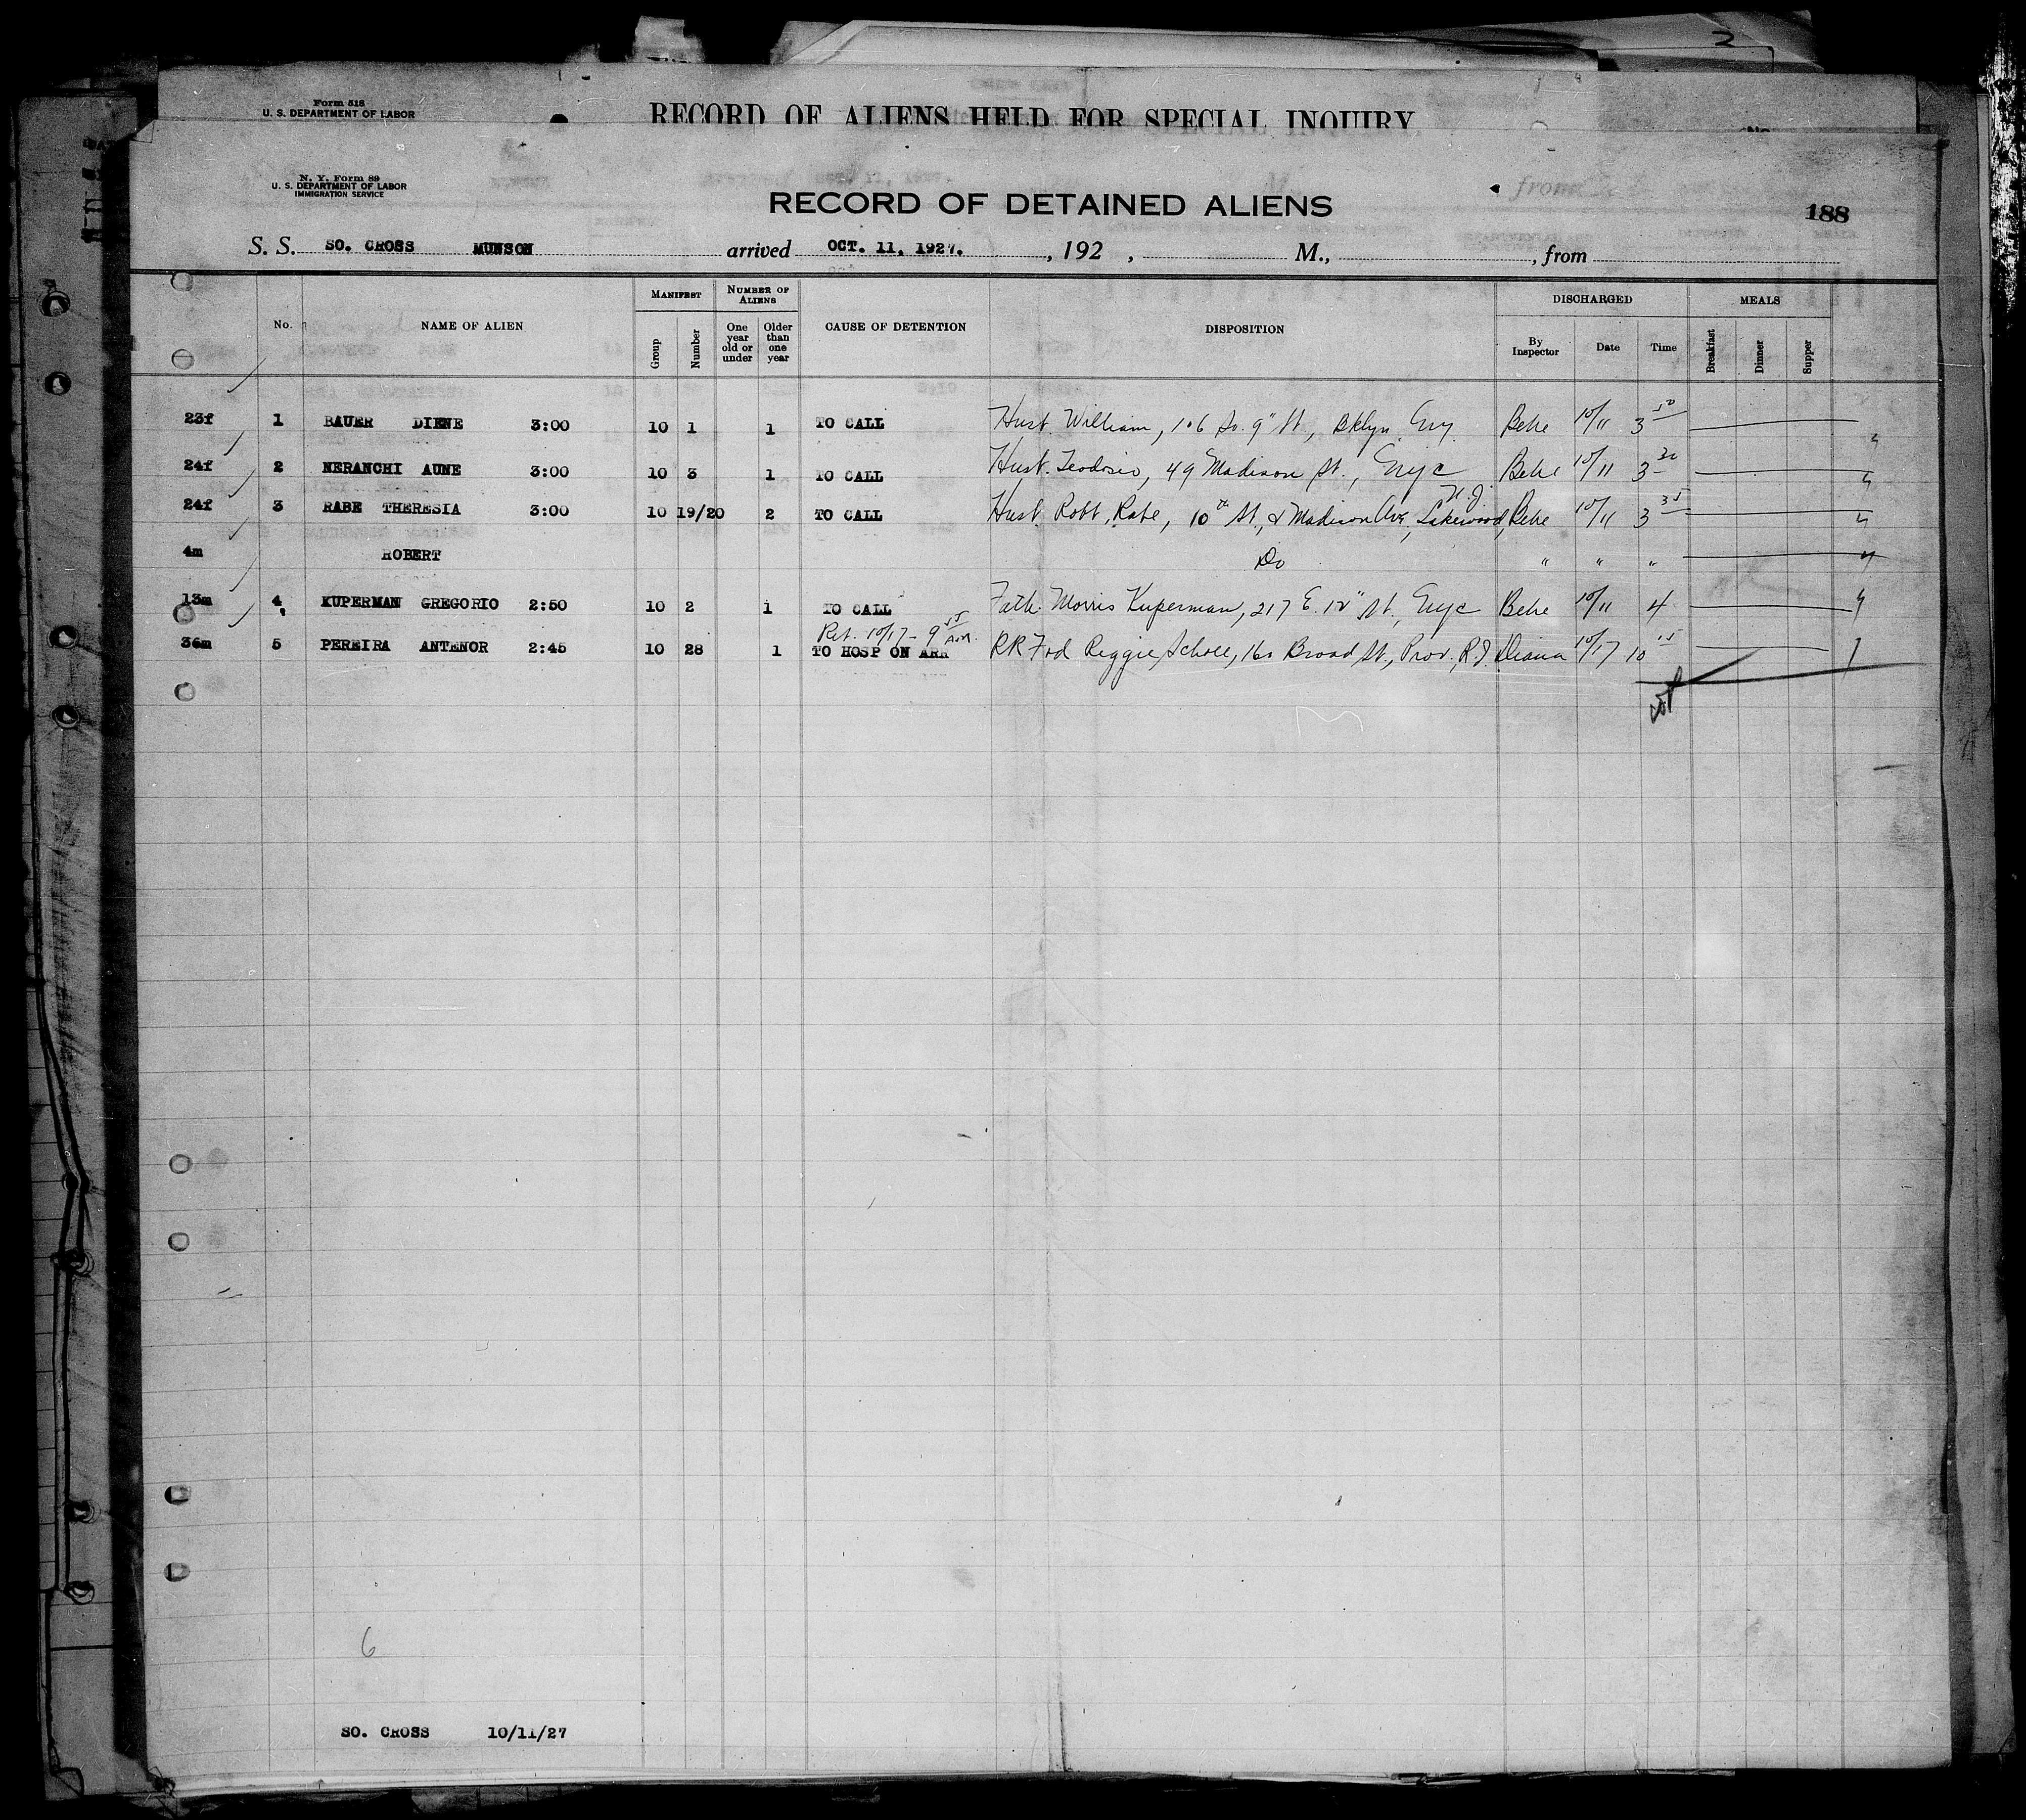 Form 518
U. S. DEPARTMENT OF LABOR
RECORD OF ALIENS HELD FOR SPECIAL INQUIRY
No.
N. Y. Form 89
U. S. DEPARTMENT OF LABOR
IMMIGRATION SERVICE
RECORD OF DETAINED ALIENS
188
S. S. SO. CROSS MUNSON arrived OCT. 11, 1927. , 192 , M., , from
No. NAME OF ALIEN MANIFEST Group Number NUMBER OF ALIENS One year old or under Older than one year CAUSE OF DETENTION DISPOSITION DISCHARGED By Inspector Date Time MEALS Breakfast Dinner Supper
23f 1 BAUER DIENE 3:00 10 1 1 TO CALL Husb. William, 106 So. 9" St, Bklyn, Behe 10/11 3 50
24f 2 NERANCHI AUNE 3:00 10 3 1 TO CALL Husb. Teodosio, 49 Madison St., NYC Behe 10/11 3 20
24f 3 RABE THERESIA 3:00 10 19/20 2 TO CALL Husb. Robt. Rabe, 10th St, & Madison Ave, Lakewood, N.J. Behe 10/11 3 35
4m ROBERT Do " " "
13m 4 KUPERMAN GREGORIO 2:50 10 2 1 TO CALL Fath. Morris Kuperman, 217 E. 12" St, NYC Behe 10/11 4
Ret. 10/17 - 9 55 A.M.
36m 5 PEREIRA ANTENOR 2:45 10 28 1 TO HOSP ON ARR RR Frd Reggie Scholl, 160 Broad St., Prov. R.I. Diana 10/17 10 15
6
SO. CROSS 10/11/27